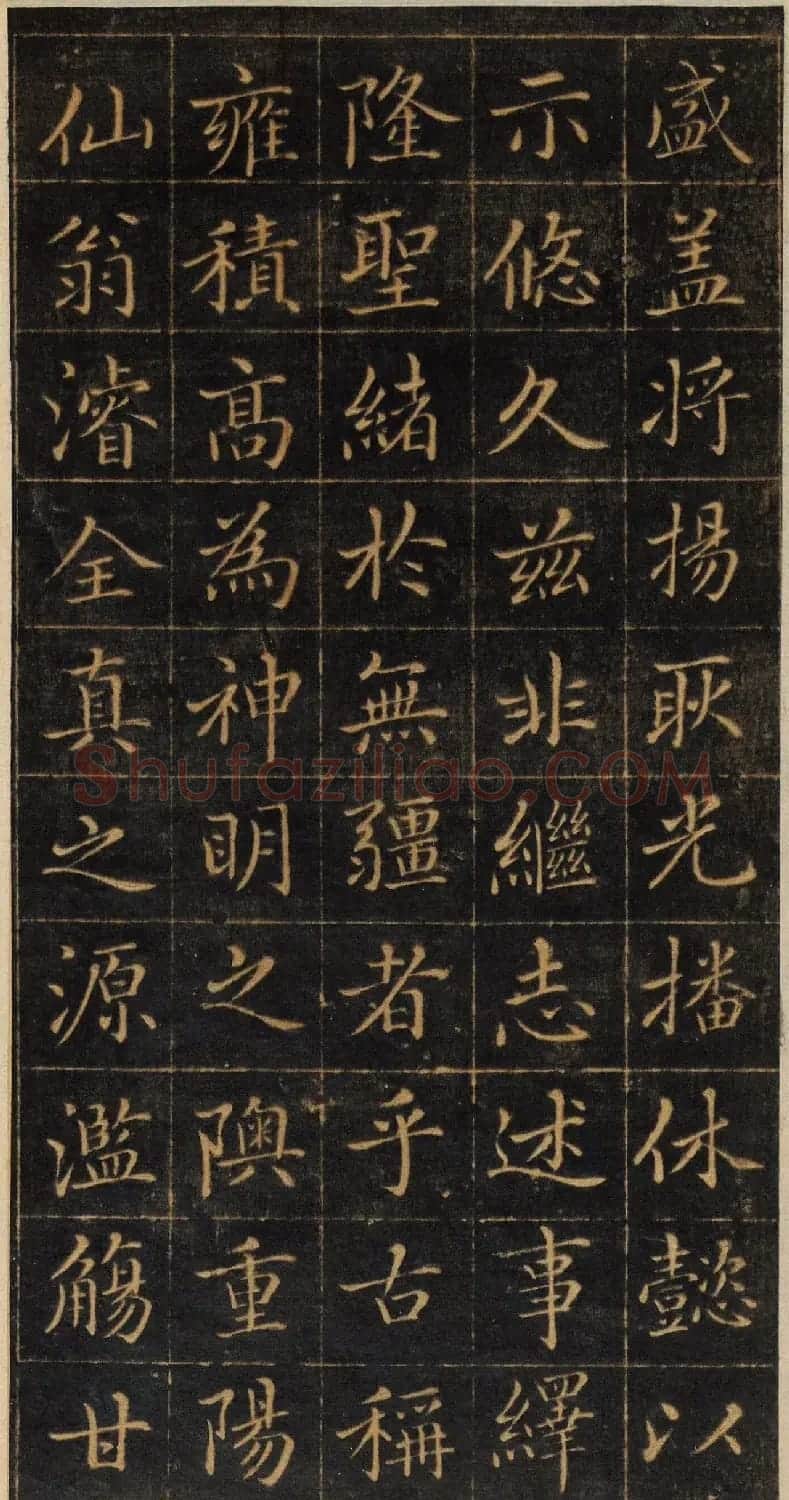 盛盖将揚耿光播休懿以
示悠久兹非繼志述事繹
隆聖緒於無疆者乎古稱
雍積高為神明之隩重陽
仙翁濬全真之源濫觴甘
Shufaziliao.COM